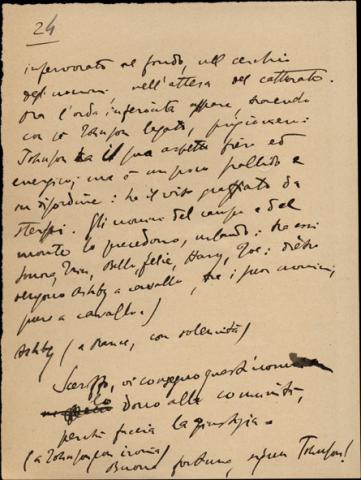 24
infervorato al fondo, nel cerchio
degli uomini nell'attesa del catturato.
Ora l'orda inferocita appare, traendo
con sè Johnson legato, prigioniero.
Johnson ha il suo aspetto fiero ed
energico; ma è un poco pallido e
in disordine: ha il viso graffiato da
sterpi. Gli uomini del campo e del
monte lo precedono, urlando: tra essi
Sonora, Trin, Bello, Felice, Harry, Joe: dietro
vengono Ashby a cavallo, tra i suoi uomini,
pure a cavallo.)
Ashby (a Rance, con solennità)
Sceriffo, vi consegno quest'uomo
dono alla comunità,
perchè faccia la giustizia.
(a Johnson con ironia)
Buona fortuna, signor Johnson!